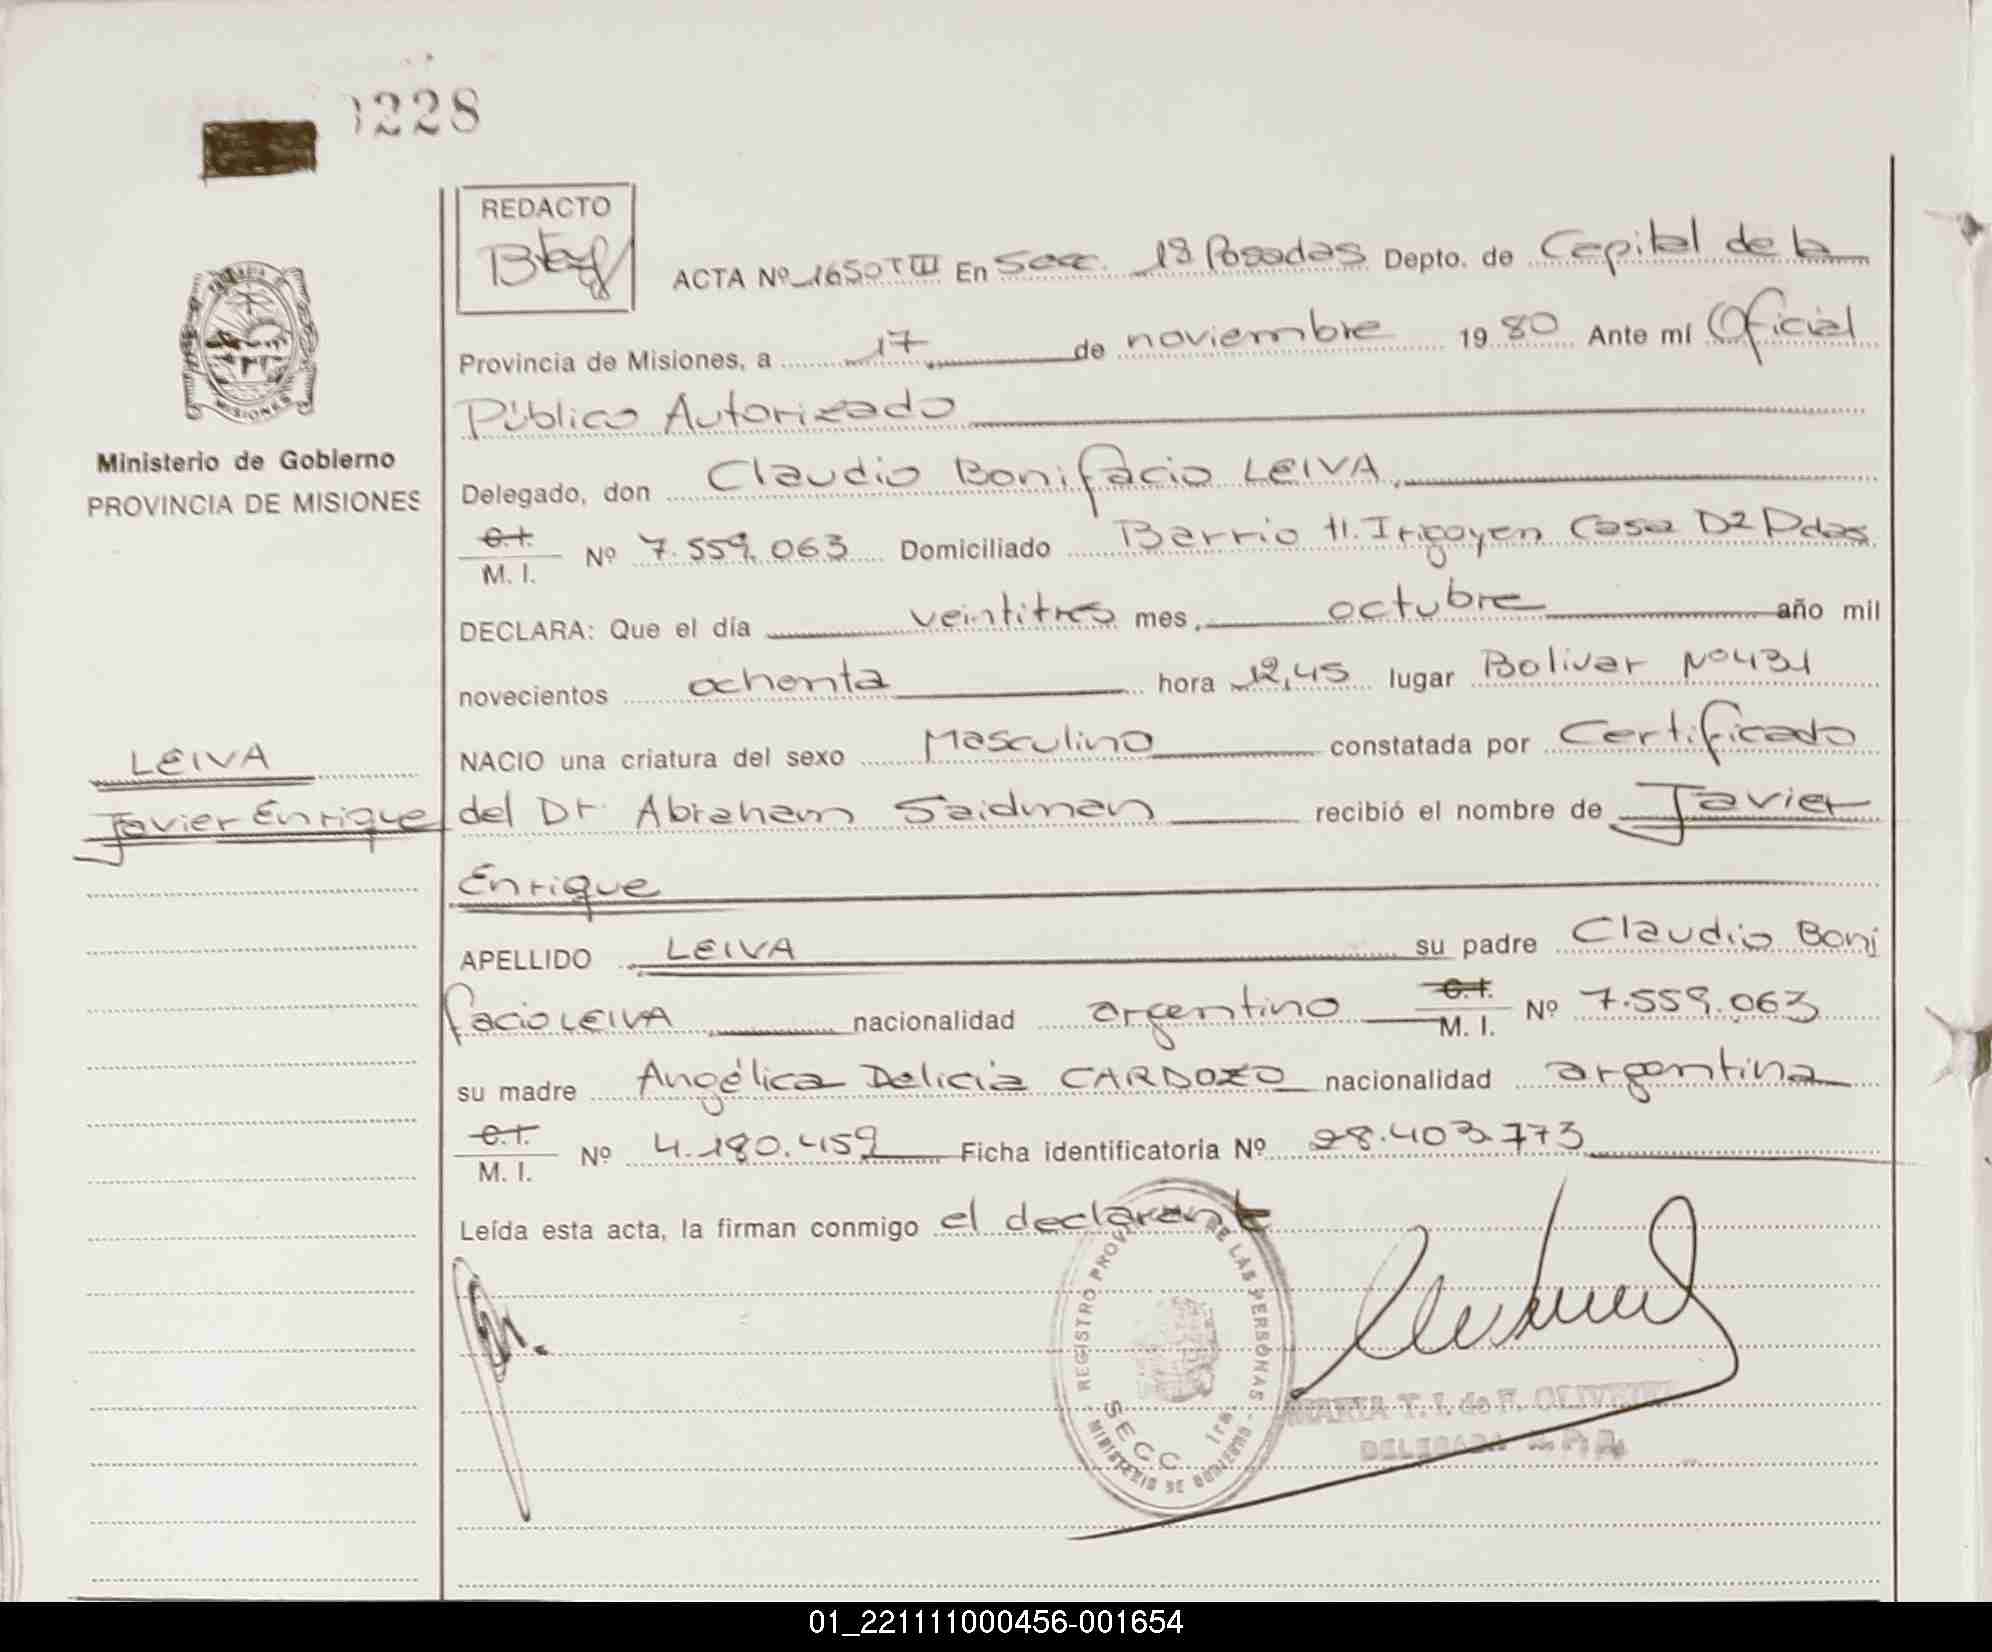 1228
REDACTO
ACTA Nº 1650 TIII En Secc. 1ª Posadas Depto. de Capital de la
Provincia de Misiones, a 17 de noviembre 1980 Ante mí Oficial
Público Autorizado
MISIONES
Ministerio de Gobierno
PROVINCIA DE MISIONES
Delegado, don Claudio Bonifacio LEIVA,
C.I.
M. I. Nº 7.559.063 Domiciliado Barrio H. Irigoyen Casa D2 Pdas
DECLARA: Que el día veintitres mes octubre año mil
novecientos ochenta hora 12,45 lugar Bolivar Nº 431
NACIO una criatura del sexo Masculino constatada por Certificado
LEIVA
Javier Enrique
del Dr. Abraham Saidman recibió el nombre de Javier
Enrique
APELLIDO LEIVA su padre Claudio Boni
facio LEIVA nacionalidad argentino C.I. M. I. Nº 7.559.063
su madre Angélica Delicia CARDOZO nacionalidad argentina
C.I.
M. I. Nº 4.180.459 Ficha identificatoria Nº 28.403.773
Leída esta acta, la firman conmigo el declarante
REGISTRO PROV DE LAS PERSONAS
SECC 1ra
MINISTERIO DE GOBIERNO
MARIA T. I. de F. OLIVEIRA
DELEGADA
01_221111000456-001654